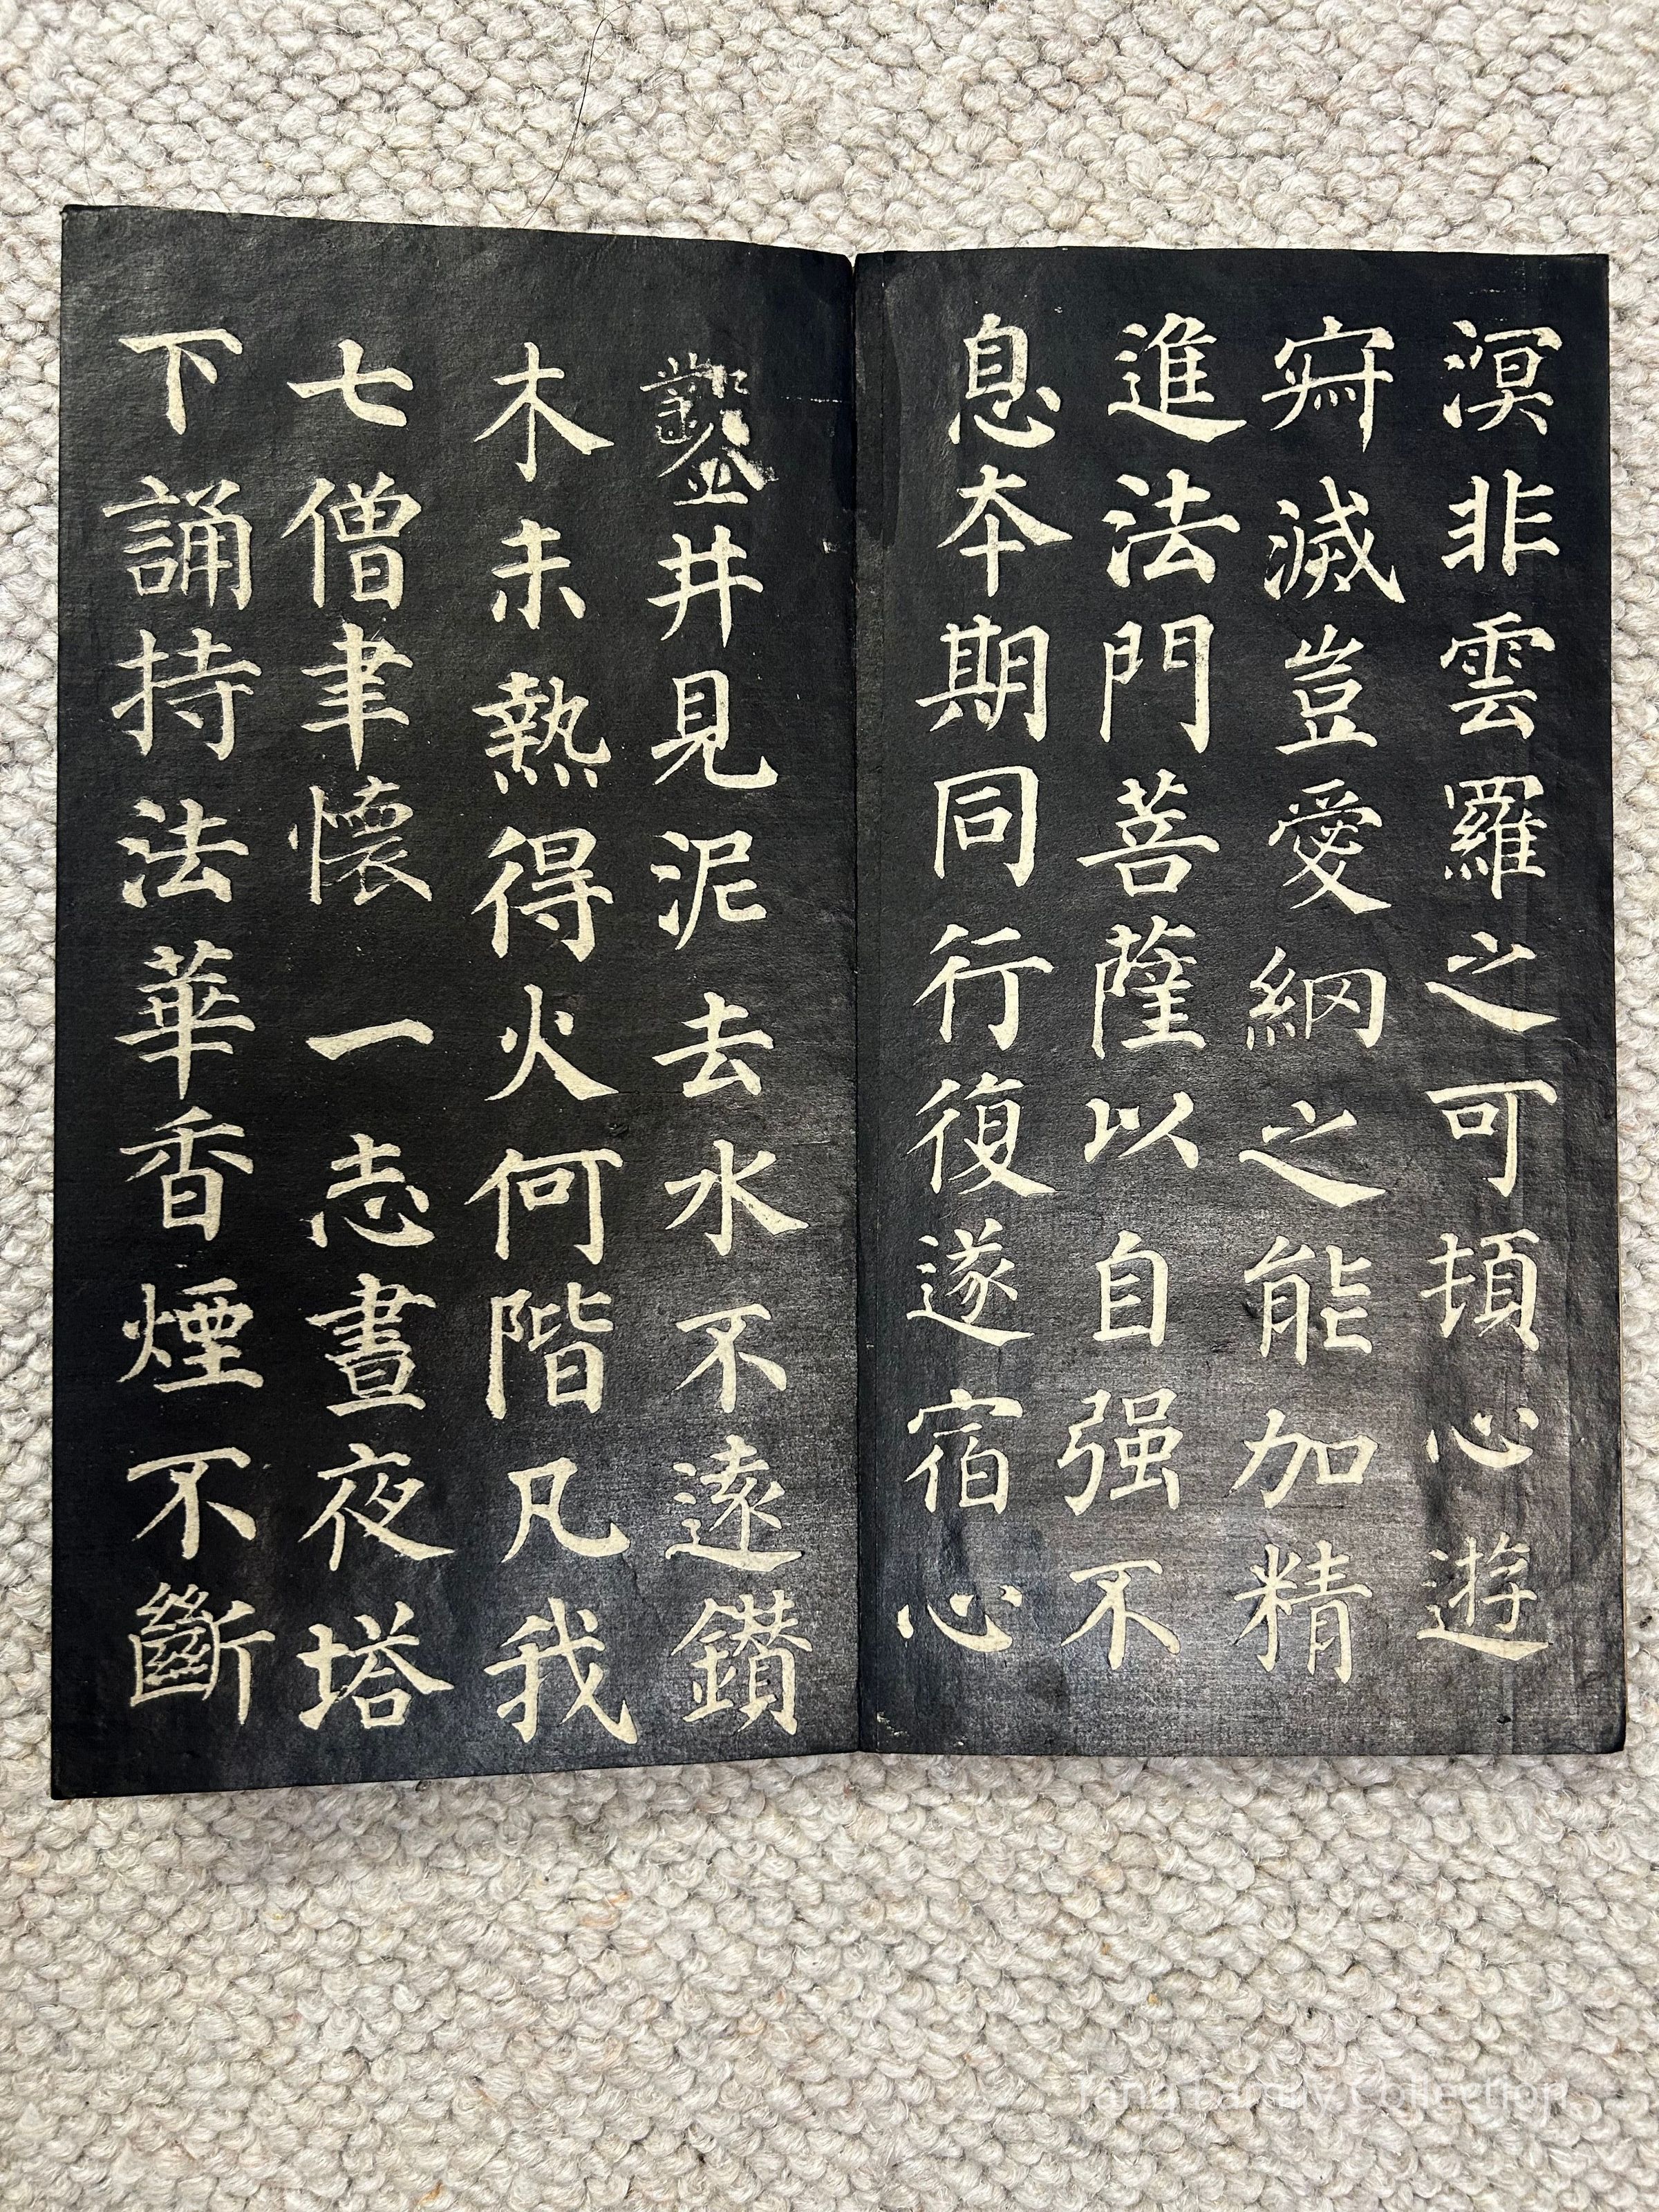 溟非雲羅之可頓心遊
㝛滅豈愛網之能加精
進法門菩薩以自强不
息本期同行復遂宿心
鑿井見泥去水不遠鑽
木未熱得火何階凡我
七僧聿懷一志晝夜塔
下誦持法華香煙不斷
Tang Family Collection